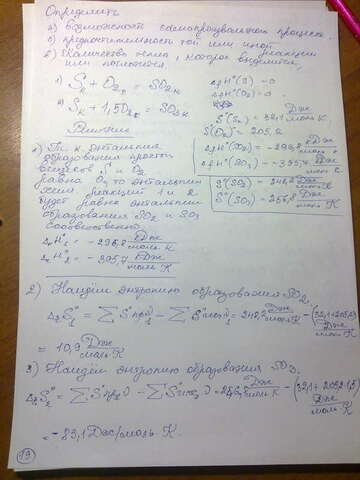 Определить
а) возможность самопроизвольного процесса
б) предпочтительность той или иной реакции
в) Количество тепла, которое выделится,
или поглотится
1) Sк + O2г = SO2г
2) Sк + 1,5O2г = SO3г
ΔfH°(S) = 0
ΔfH°(O2) = 0
S°(Sк) = 32,1 Дж/моль·К
S°(O2) = 205,2
ΔfH°(SO2) = -296,8
ΔfH°(SO3) = -395,7
S°(SO2) = 248,2 Дж/моль К
S°(SO3) = 256,8 Дж/моль К
Решение
1) Т.к. энтальпия
образования простых
веществ S и O2
равна 0, то энтальпии
реакций 1 и 2
будет равна энтальпии
образования SO2 и SO3
соответственно.
ΔrH°1 = -296,8 кДж/моль К
ΔrH°2 = -395,7 кДж/моль К
2) Найдём энтропию образования SO2.
= 248,2 Дж/моль К - (32,1+205,2) Дж/моль К
= 10,9 Дж/моль К
3) Найдём энтропию образования SO3.
Дж/моль К - (32,1 + 205,2·1,5) Дж/моль К
= -83,1 Дж/моль·К.